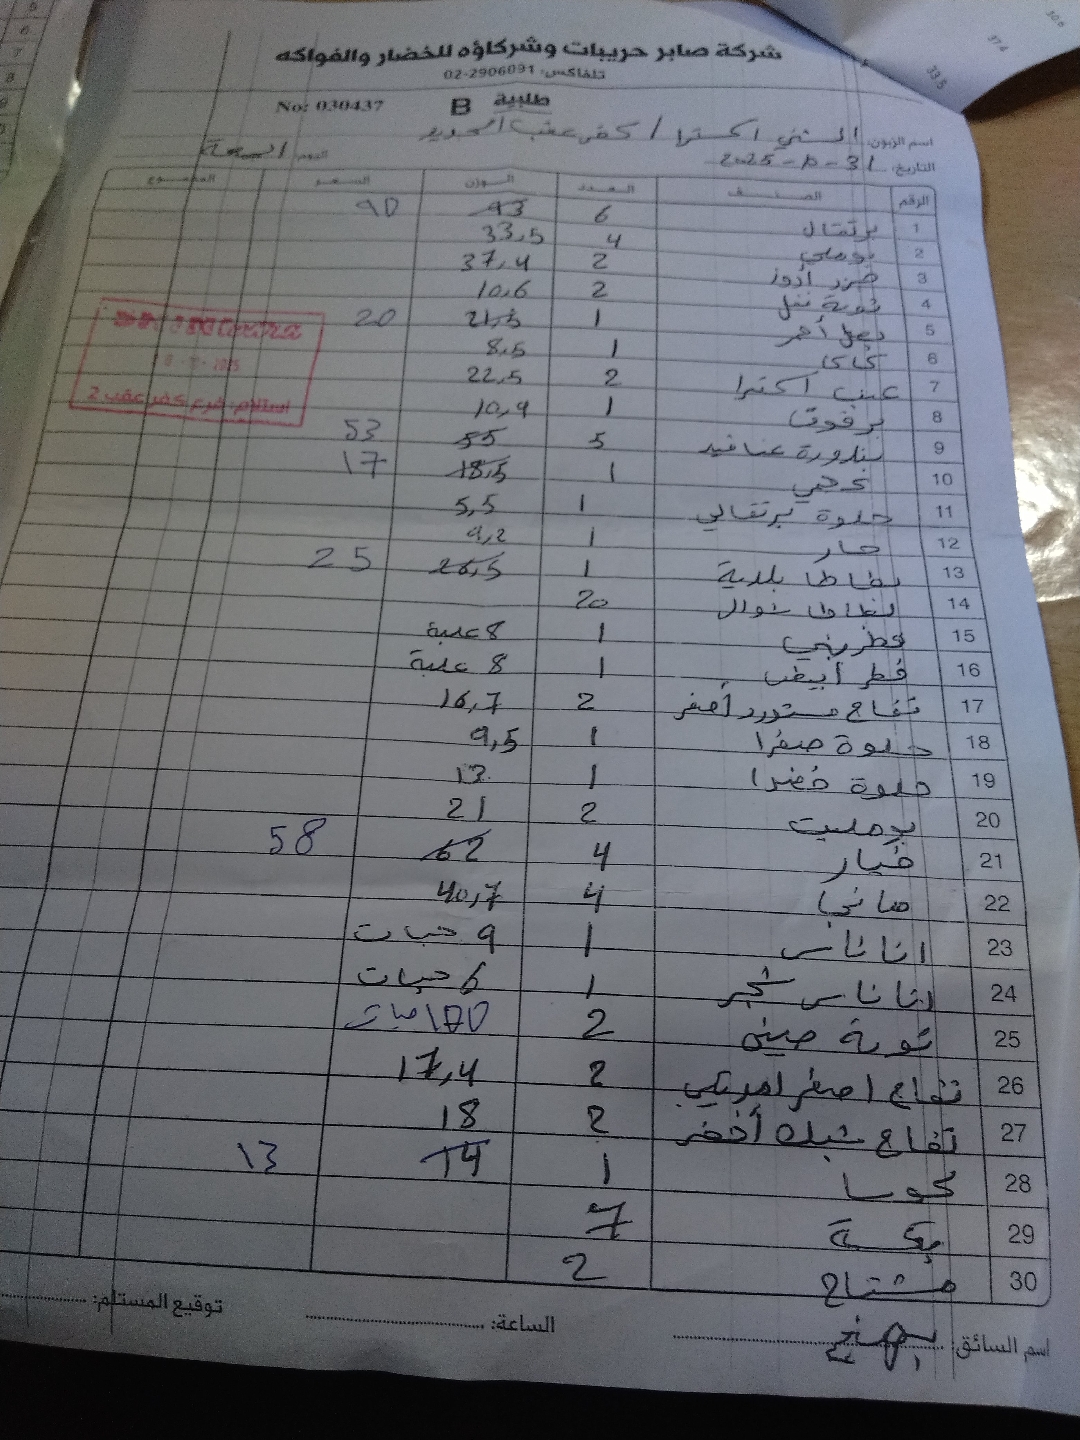 شركة صابر حريبات وشركاؤه للخضار والفواكه
تلفاكس: 02-2906091
طلبية B No: 030437
اسم الزبون: السني اكسترا / كفر عقب الجديد
التاريخ: 31-10-2025 اليوم: الجمعة
الرقم الصنف العدد الوزن السعر المجموع
1 برتقال 6 93 90
2 بوملي 4 33,5
3 2 37,4
4 ثومة نفل 2 10,6
5 بصل أحمر 1 21,5 20
6 كاكا 1 8,5
7 عنب اكسترا 2 22,5
8 برقوق 1 10,9
9 بندورة عناقيد 5 55 53
10 عجمي 1 18,5 17
11 حلوة برتقالي 1 5,5
12 حار 1 9,2
13 بطاطا بلدية 1 26,5 25
14 بطاطا شوال 20
15 فطر بني 1 8 علبة
16 فطر أبيض 1 8 علبة
17 تفاح مستورد أصفر 2 16,7
18 حلوة صفرا 1 9,5
19 حلوة خضرا 1 13
20 بومليت 2 21
21 خيار 4 62 58
22 مانجا 4 40,7
23 اناناس 1 9 حبات
24 اناناس 1 6 حبات
25 ثومة صيني 2 100
26 تفاح اصفر امريكي 2 17,4
27 تفاح أخضر 2 18
28 كوسا 1 14 13
29 بكسة 7
30 مشتاح 2
استلام: فرع كفر عقب 2
اسم السائق: الساعة: توقيع المستلم: